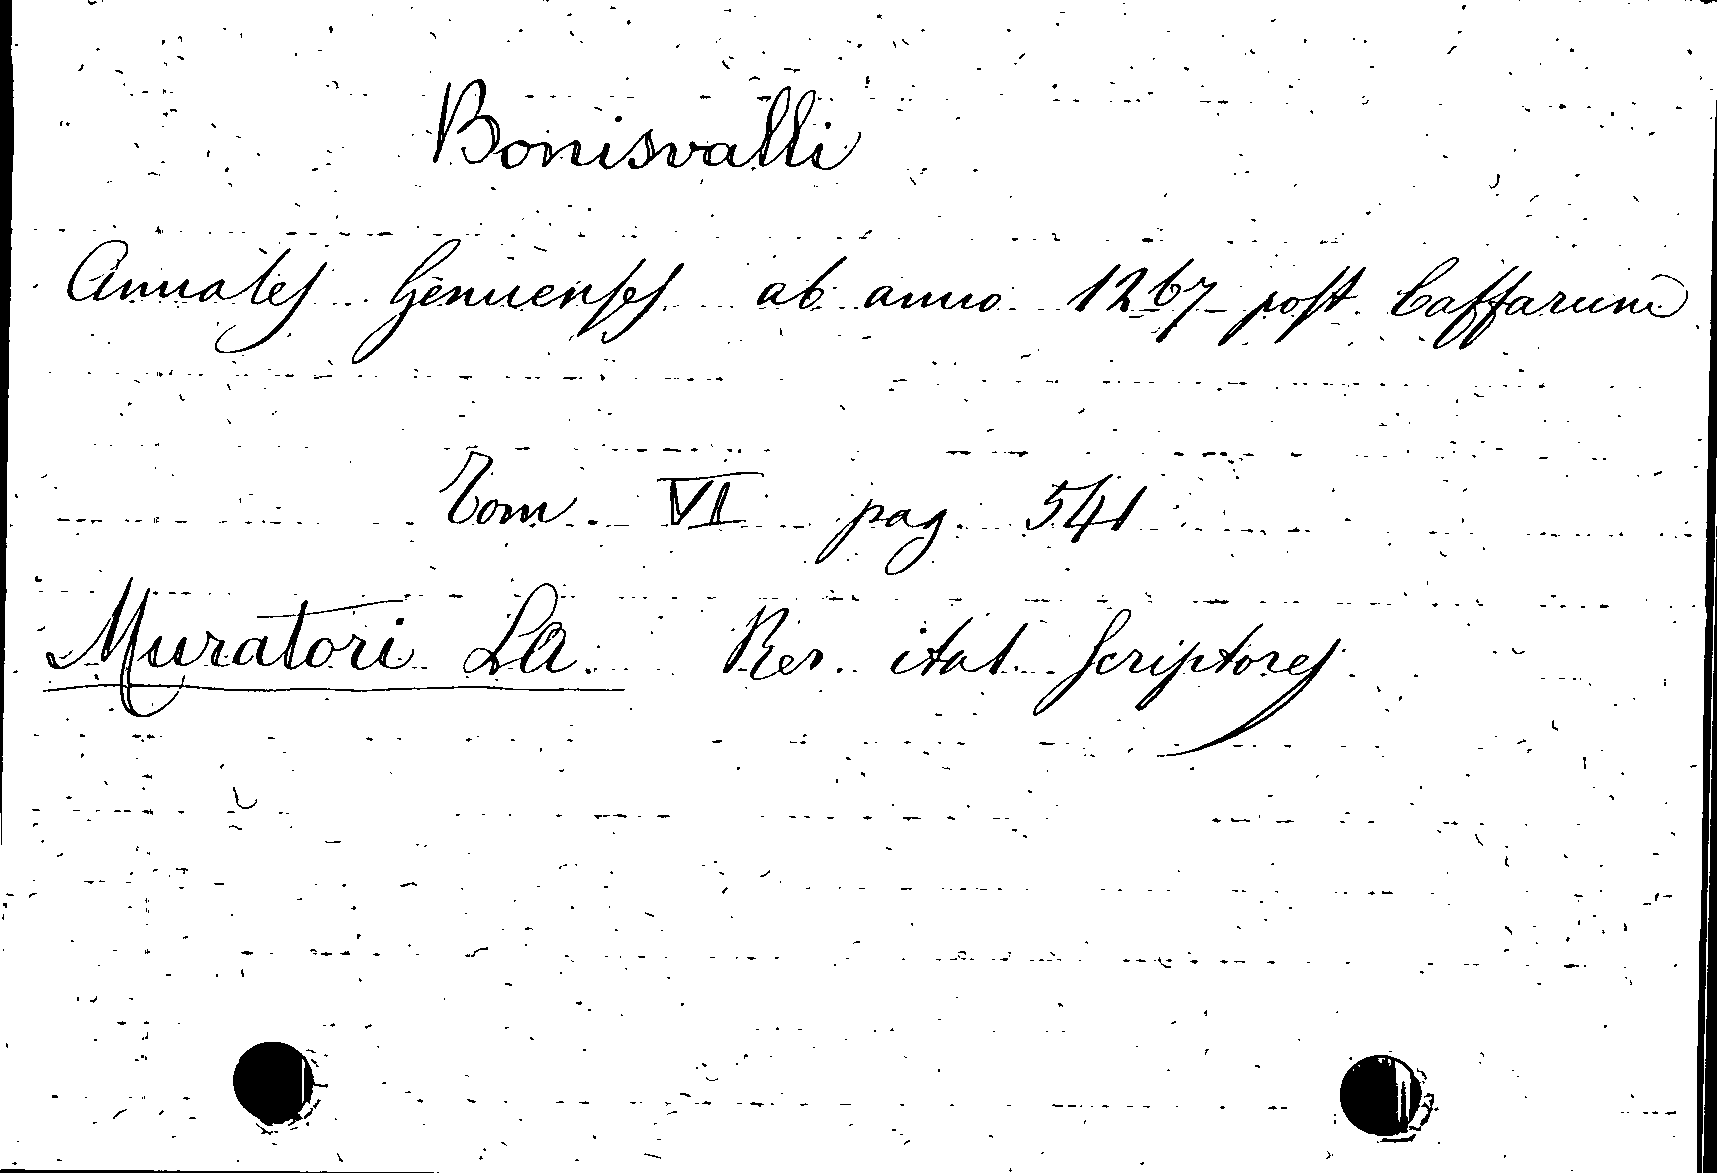 Bonisvalli
Annales Genuenses ab anno 1267 post Caffarum
Tom. VI pag. 541
Muratori LA. Rer. ital. Scriptores